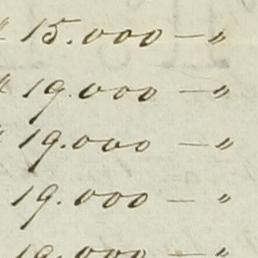 " 15.000 — "
" 19.000 — "
" 19.000 — "
19.000 — "
19.000 — "